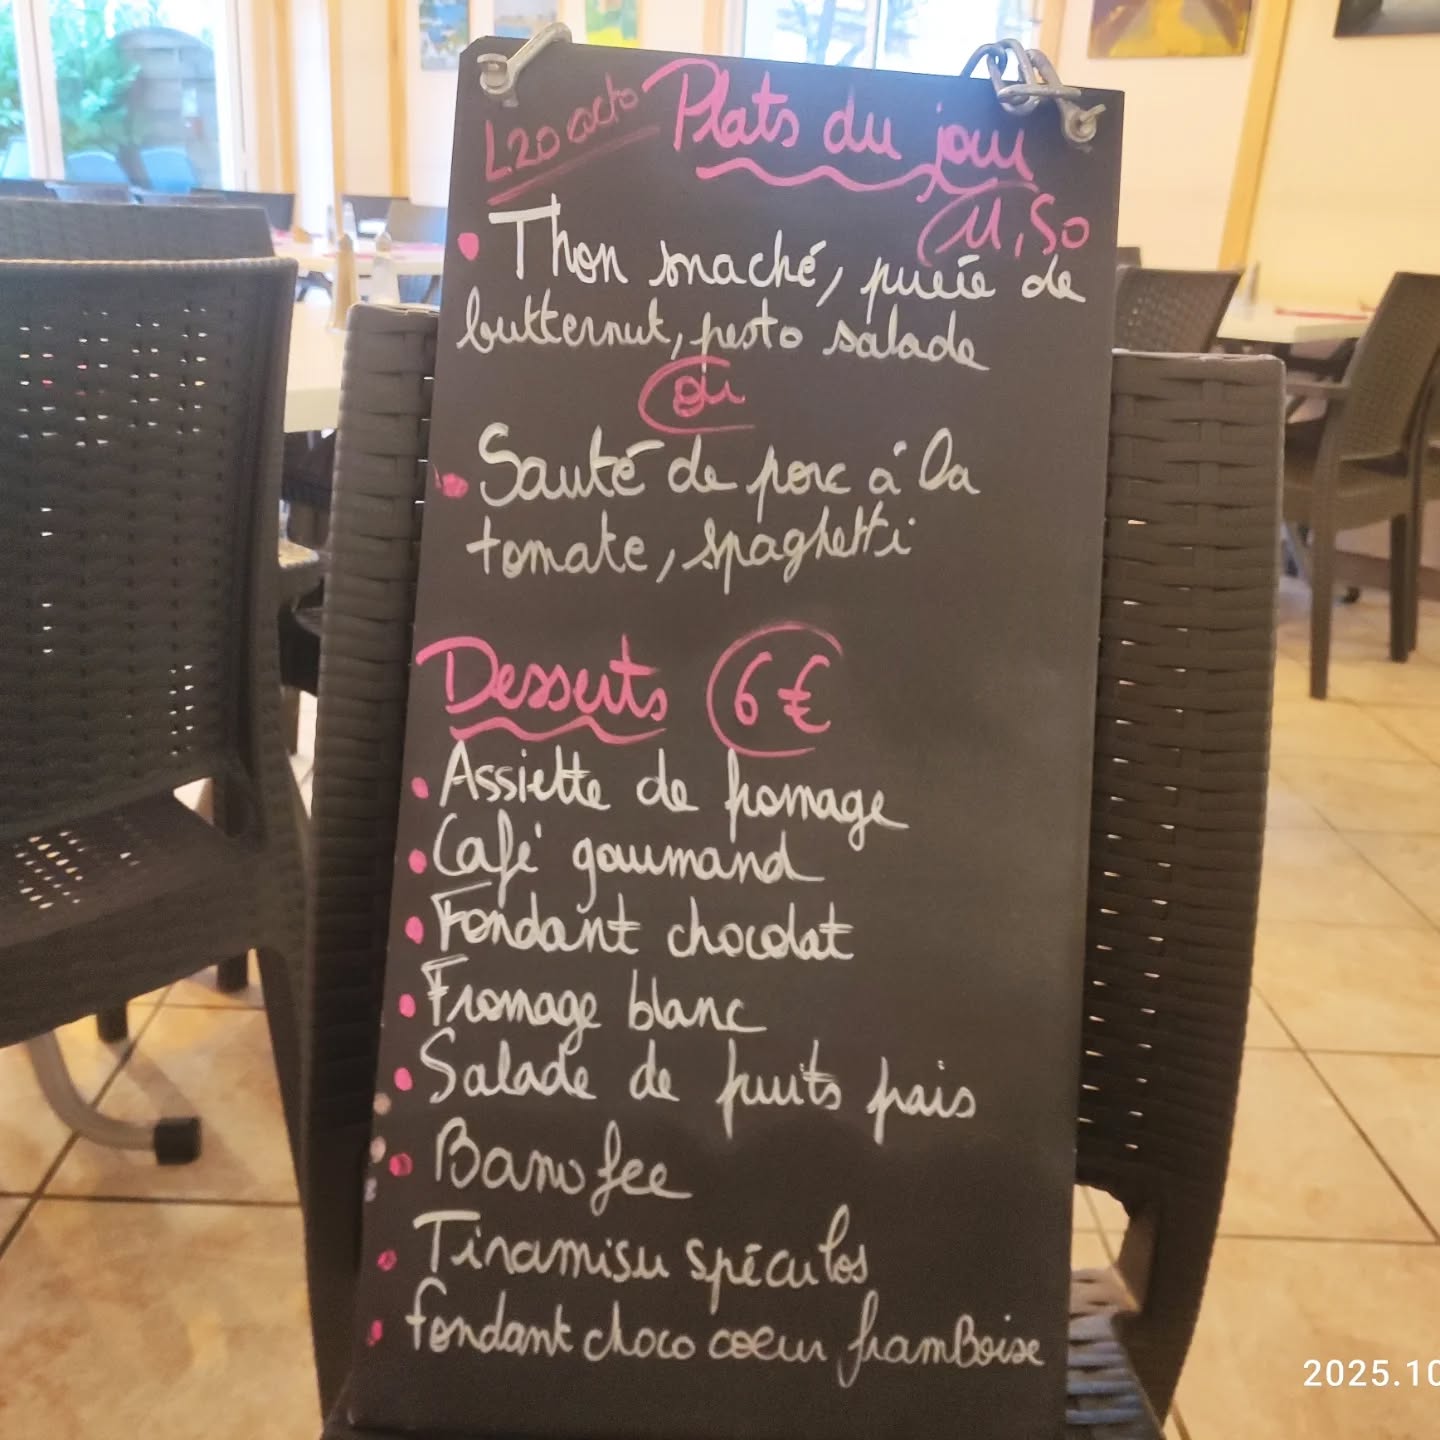 L20 octo Plats du jour
11,50
Thon snaché, purée de
butternut, pesto salade
ou
Sauté de porc à la
tomate, spaghetti
Desserts 6€
Assiette de fromage
Café gourmand
Fondant chocolat
Fromage blanc
Salade de fruits frais
Banofee
Tiramisu spéculos
fondant choco coeur framBoise
2025.10